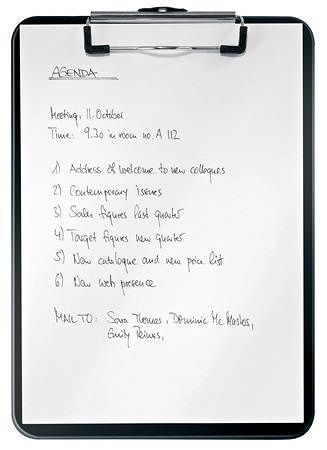 AGENDA
Meeting: 11. October
Time: 9.30 in room no. A 112
1) Address of welcome to new colleques
2) Contemporary issues
3) Sales figures last quarter
4) Target figures new quarter
5) New catalogue and new price list
6) New web presence
MAIL TO: Sara Thomas, Dominic Mc
Emily